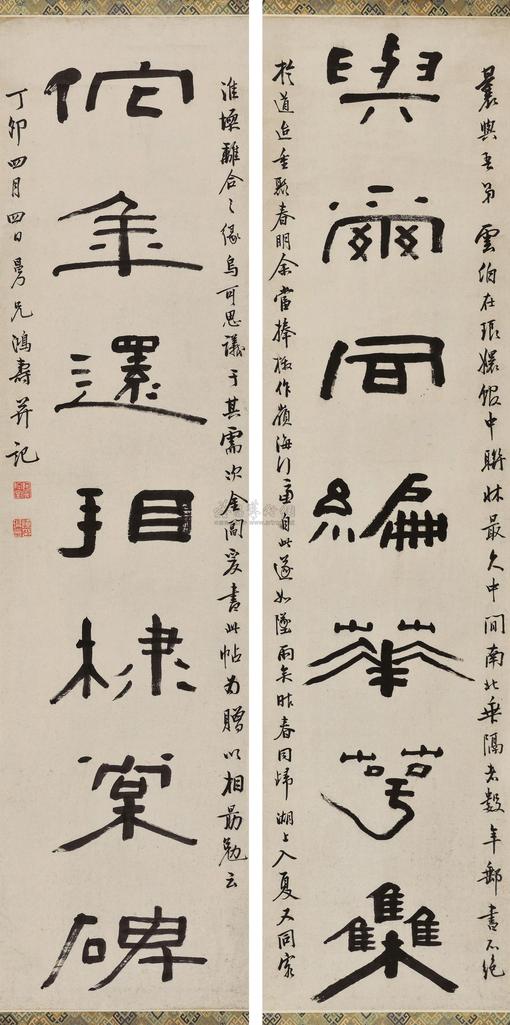 曩與吾弟雲伯在琅嬛館中聯牀最久中間南北乖隔者數年郵書不絕
與爾同編華萼集
於道迨重聚春明余當捧檄作嶺海行自此遂如墜雨矣昨春同歸湖上入夏又同客
淮壖離合之緣烏可思議于其需次金閶爰書此帖為贈以相勗勉云
佗金還相棣棠碑
丁卯四月四日曼兄鴻壽并記